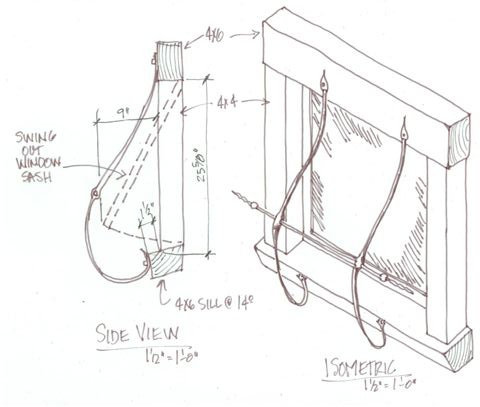 4x6
9"
4x4
SWING
OUT
WINDOW
SASH
25 5/8"
1 1/2"
4x6 SILL @ 14°
SIDE VIEW
1 1/2" = 1'-0"
ISOMETRIC
1 1/2" = 1'-0"